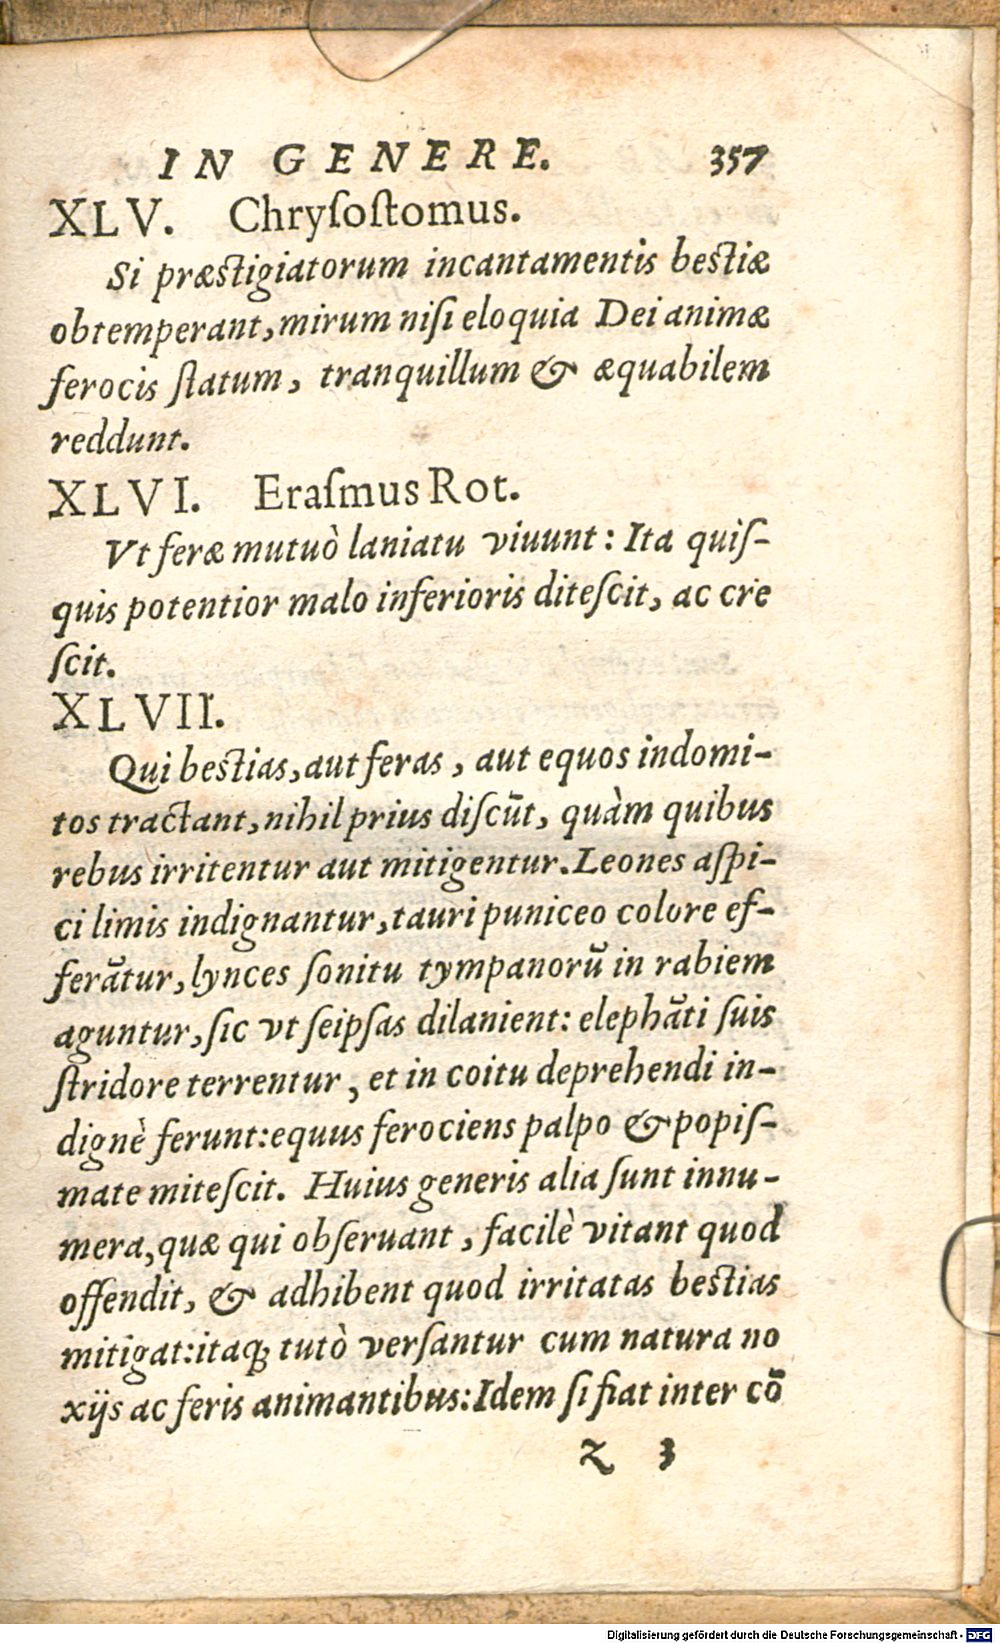 IN GENERE. 357
XLV. Chryſoſtomus.
Si præſtigiatorum incantamentis beſtiæ
obtemperant, mirum niſi eloquia Dei animæ
ferocis ſtatum, tranquillum & æquabilem
reddunt.
XLVI. Eraſmus Rot.
Vt feræ mutuò laniatu viuunt: Ita quiſ-
quis potentior malo inferioris diteſcit, ac cre
ſcit.
XLVII.
Qui beſtias, aut feras, aut equos indomi-
tos tractant, nihil prius diſcūt, quàm quibus
rebus irritentur aut mitigentur. Leones aſpi-
ci limis indignantur, tauri puniceo colore ef-
ferātur, lynces ſonitu tympanorū in rabiem
aguntur, ſic vt ſeipſas dilanient: elephāti ſuis
ſtridore terrentur, et in coitu deprehendi in-
dignè ferunt: equus ferociens palpo & popiſ-
mate miteſcit. Huius generis alia ſunt innu-
mera, quæ qui obſeruant, facilè vitant quod
offendit, & adhibent quod irritatas beſtias
mitigat: itaq; tutò verſantur cum natura no
xijs ac feris animantibus: Idem ſi fiat inter cō
z 3
Digitalisierung gefördert durch die Deutsche Forschungsgemeinschaft - DFG